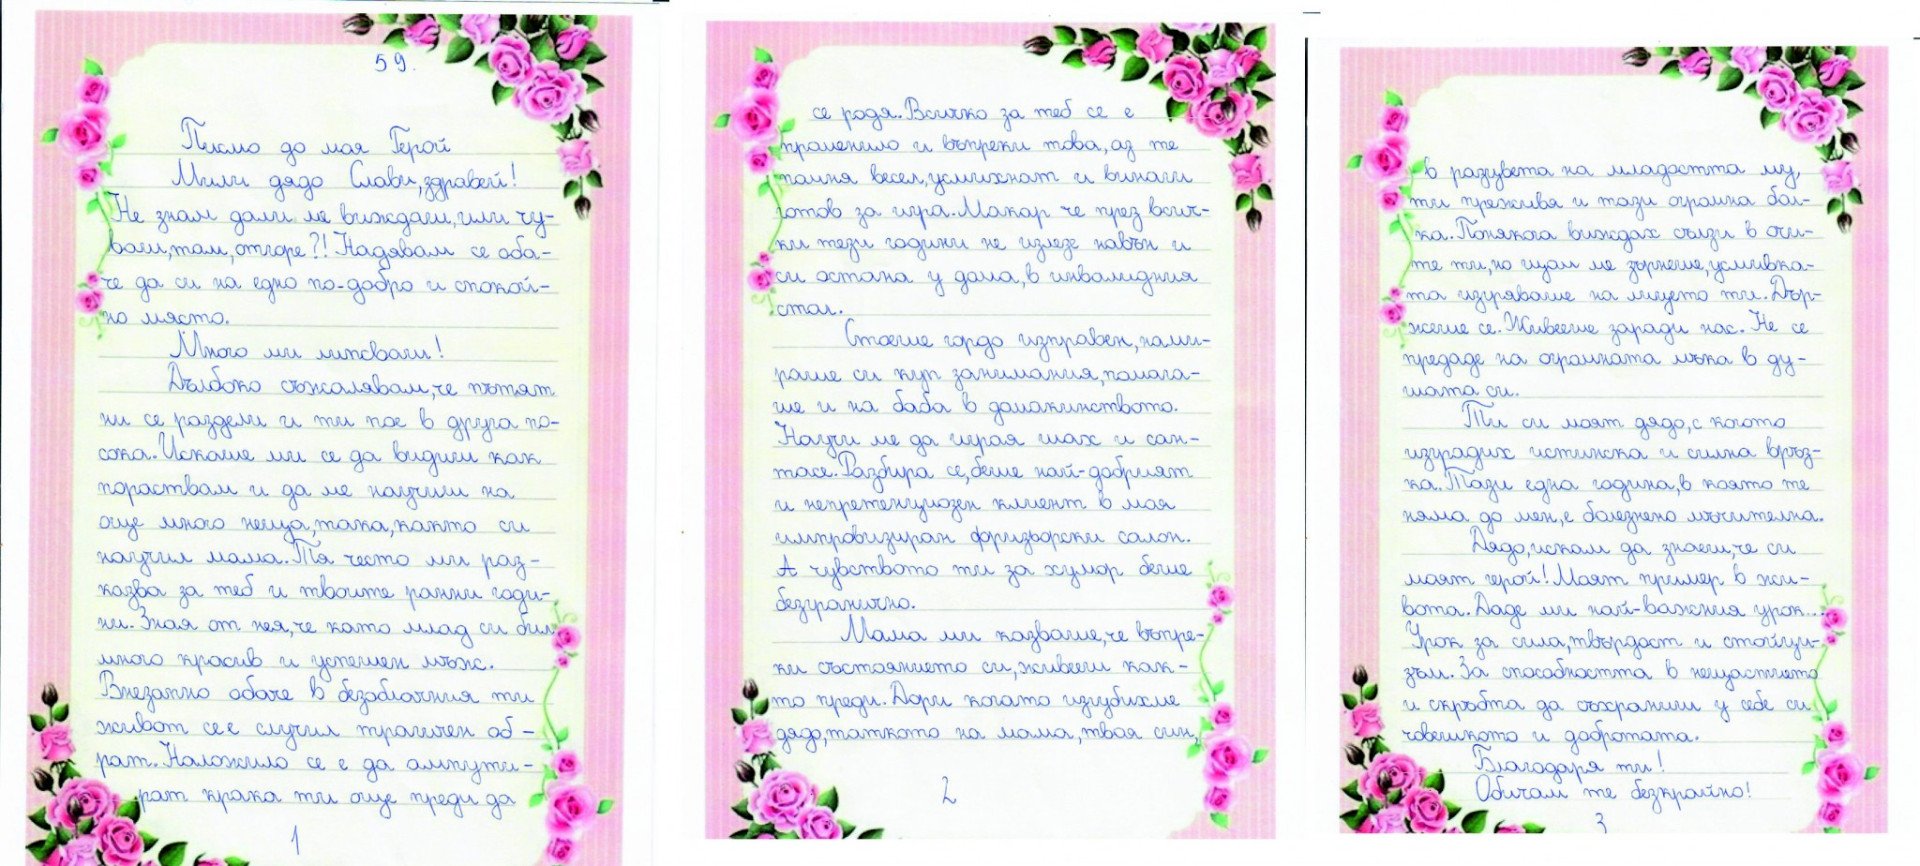 59.
Писмо до моя Герой
Мили дядо Слави, здравей!
Не знам дали ме виждаш, или чу-
ваш, там, отгоре?! Надявам се оба-
че да си на едно по-добро и спокой-
но място.
Много ми липсваш!
Дълбоко съжалявам, че пътят
ни се раздели и ти пое в друга по-
сока. Искаше ми се да видиш как
пораствам и да ме научиш на
още много неща, така, както си
научил мама. Тя често ми раз-
казва за теб и твоите ранни годи-
ни. Зная от нея, че като млад си бил
много красив и успешен мъж.
Внезапно обаче в безоблачния ти
живот се е случил трагичен об-
рат. Наложило се е да ампути-
рат крака ти още преди да
1
се родя. Всичко за теб се е
променило и въпреки това, аз те
помня весел, усмихнат и винаги
готов за игра. Макар че през всич-
ки тези години не излезе навън и
си остана у дома, в инвалидния
стол.
Стоеше гордо изправен, нами-
раше си куп занимания, помага-
ше и на баба в домакинството.
Научи ме да играя шах и сан-
тасе. Разбира се, беше най-добрият
и непретенциозен клиент в моя
импровизиран фризьорски салон.
А чувството ти за хумор беше
безгранично.
Мама ми казваше, че въпре-
ки състоянието си, живееш как-
то преди. Дори когато изгубихме
дядо, таткото на мама, твоя син,
2
в разцвета на младостта му,
ти преживя и тази огромна бол-
ка. Понякога виждах сълзи в очи-
те ти, но щом ме зърнеше, усмивка-
та изгряваше на лицето ти. Дър-
жеше се. Живееше заради нас. Не се
предаде на огромната мъка в ду-
шата си.
Ти си моят дядо, с когото
изградих истинска и силна връз-
ка. Тази една година, в която те
няма до мен, е болезнено мъчителна.
Дядо, искам да знаеш, че си
моят герой! Моят пример в жи-
вота. Даде ми най-важния урок...
Урок за сила, твърдост и стоици-
зъм. За способността в нещастието
и скръбта да съхраниш у себе си
човешкото и добротата.
Благодаря ти!
Обичам те безкрайно!
3